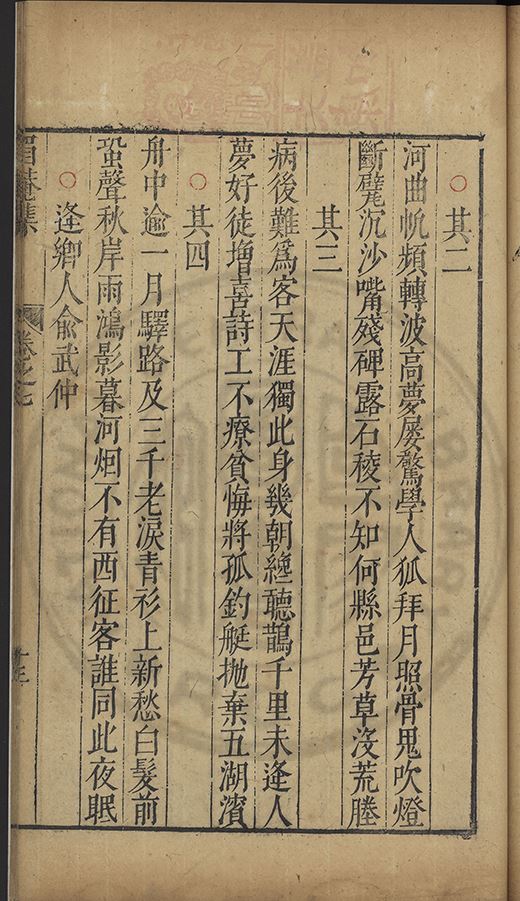 ○其二
河曲帆頻轉波高夢屢驚學人狐拜月照骨鬼吹燈
斷甓沉沙嘴殘碑露石稜不知何縣邑芳草沒荒塍
其三
病後難爲客天涯獨此身幾朝纔聽鵲千里未逢人
夢好徒增喜詩工不療貧悔將孤釣艇拋棄五湖濱
○其四
舟中逾一月驛路及三千老淚青衫上新愁白髮前
蛩聲秋岸雨鴻影暮河烟不有西征客誰同此夜眠
○逢鄉人兪武仲
眉菴集
卷之七